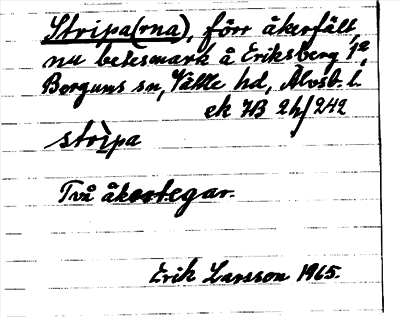 Stripa(rna), förr åkerfält,
nu betesmark å Eriksberg 1²,
Borguns sn, Vättle hd, Älvsb. l.
ek 7B 2h/242
strìpa
Två åkertegar.
Erik Larsson 1965.